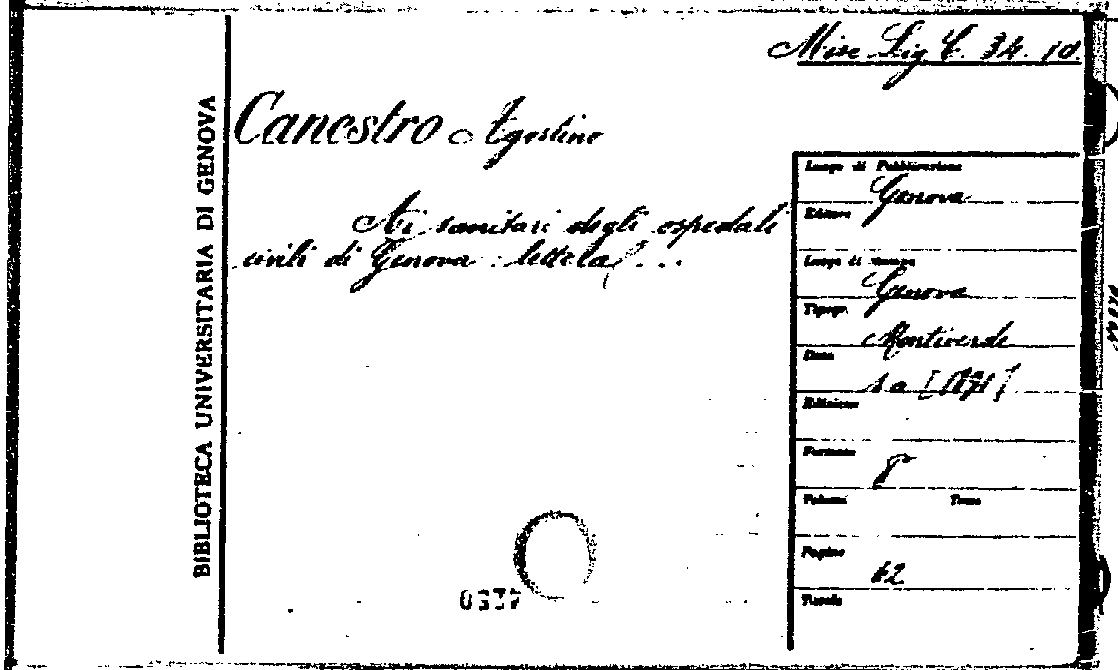 Misc Lig C. 34. 10.
BIBLIOTECA UNIVERSITARIA DI GENOVA
Canestro Agostino
Ai sanitari degli ospedali
civili di Genova : lettera ...
Luogo di Pubblicazione
Genova
Editore
Luogo di stampa
Genova
Tipogr.
Montiverde
Data
s a
Edizione
Formato
8°
Volumi Tomo
Pagine
12
Tavole